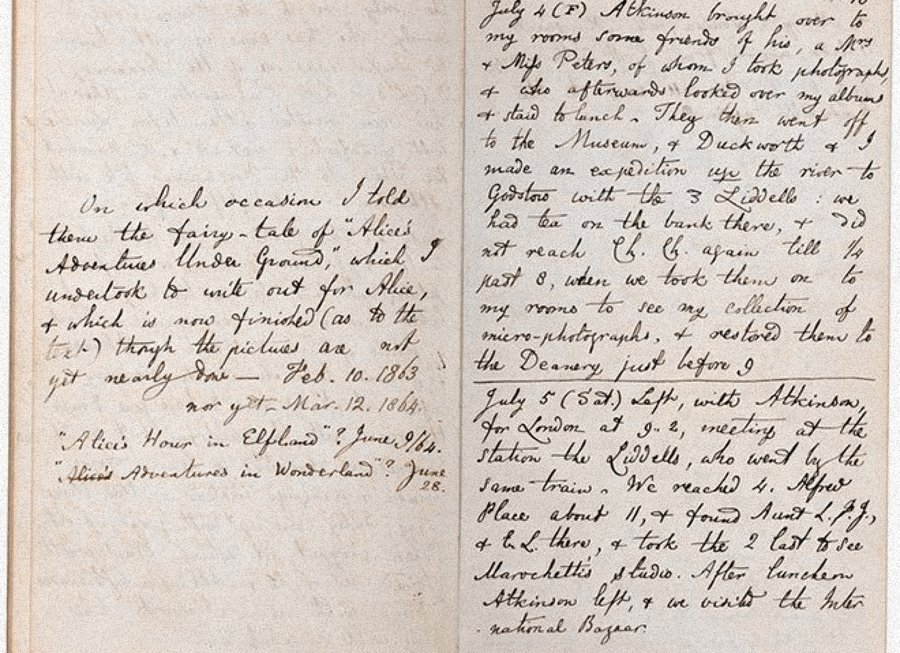 On which occasion I told
them the fairy-tale of "Alice's
Adventures Under Ground," which I
undertook to write out for Alice,
& which is now finished (as to the
text) though the pictures are not
yet nearly done — Feb. 10. 1863
nor yet – Mar. 12. 1864.
"Alice's Hour in Elfland"? June 9/64.
"Alice's Adventures in Wonderland"? June
28.
July 4 (F) Atkinson brought over to
my rooms some friends of his, a Mrs
& Miss Peters, of whom I took photographs,
& who afterwards looked over my albums
& staid to lunch. They then went off
to the Museum, & Duckworth & I
made an expedition up the river to
Godstow with the 3 Liddells : we
had tea on the bank there, & did
not reach Ch. Ch. again till ¼
past 8, when we took them on to
my rooms to see my collection of
micro-photographs, & restored them to
the Deanery just before 9
July 5 (Sat.) Left, with Atkinson,
for London at 9.2, meeting at the
station the Liddells, who went by the
same train. We reached 4. Alfred
Place about 11, & found Aunt L. P. J.,
& E. L. there, & took the 2 last to see
Marochetti's studio. After luncheon
Atkinson left, & we visited the Inter
-national Bazaar.